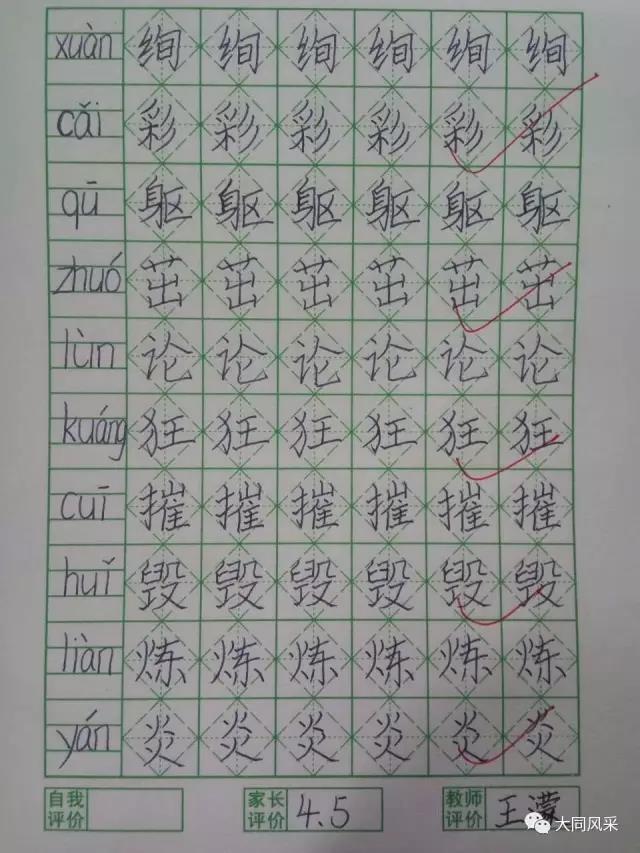 xuàn 绚 绚 绚 绚 绚 绚
cǎi 彩 彩 彩 彩 彩 彩
qū 躯 躯 躯 躯 躯 躯
zhuó 茁 茁 茁 茁 茁 茁
lùn 论 论 论 论 论 论
kuáng 狂 狂 狂 狂 狂 狂
cuī 摧 摧 摧 摧 摧 摧
huǐ 毁 毁 毁 毁 毁 毁
liàn 炼 炼 炼 炼 炼 炼
yán 炎 炎 炎 炎 炎 炎
自我评价
家长评价 4.5
教师评价 王濛
大同风采